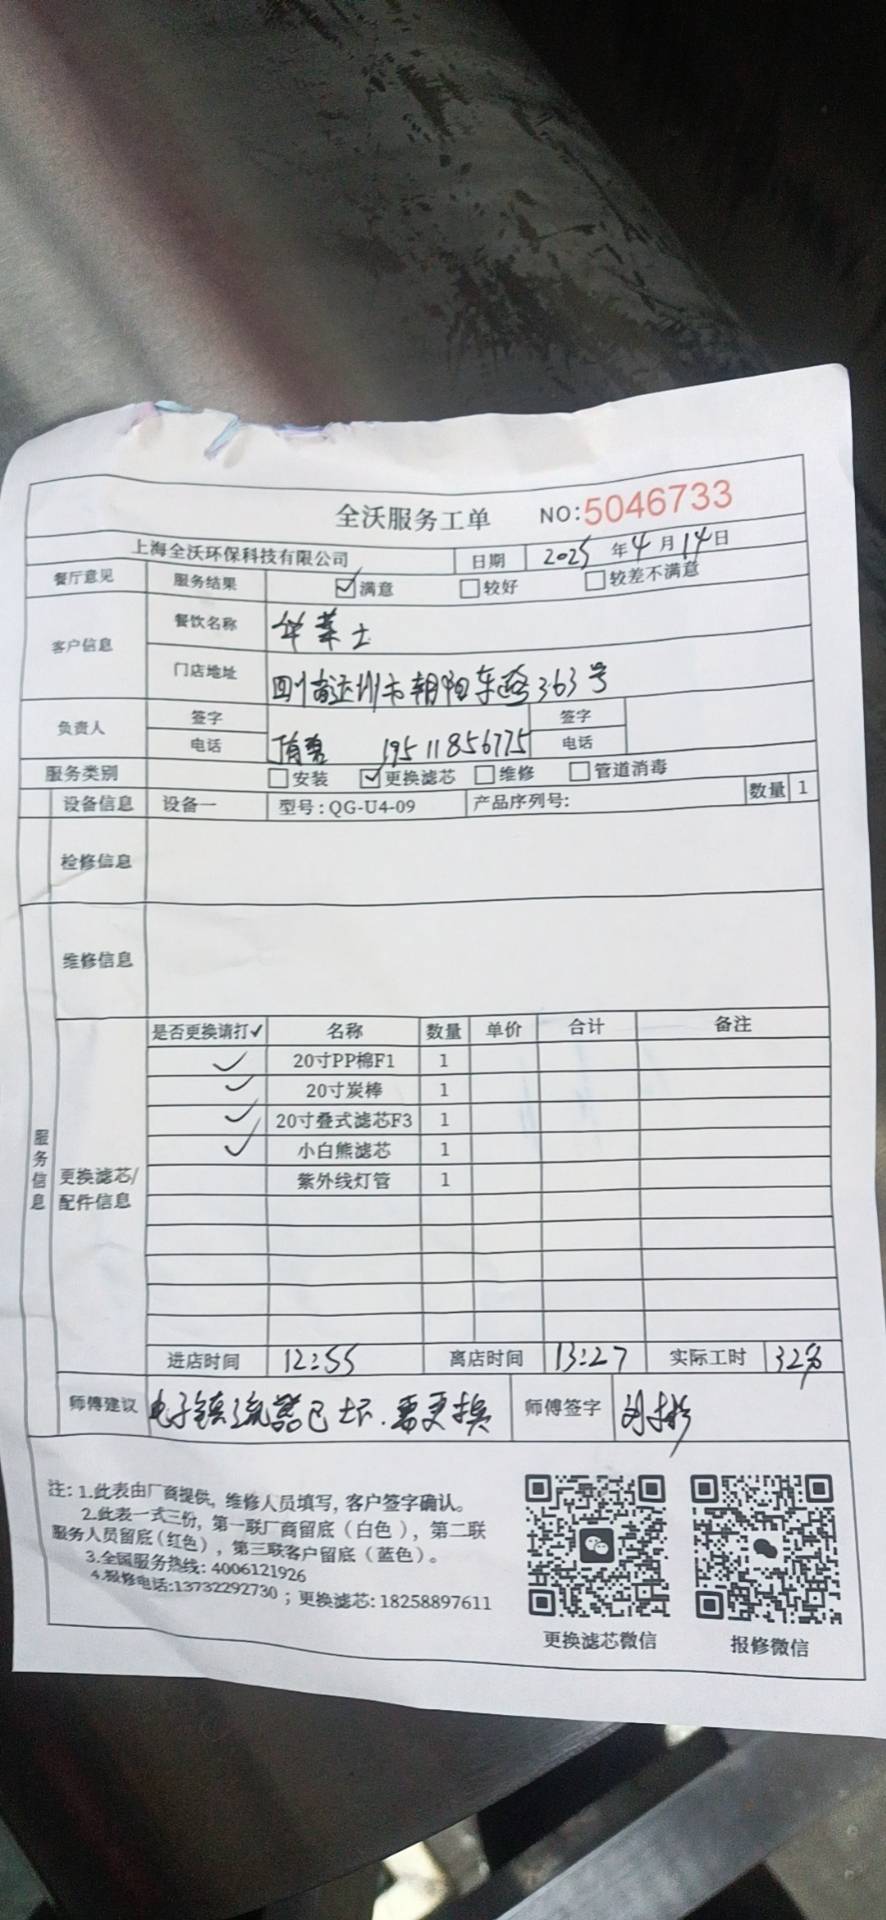 全沃服务工单 NO:5046733
上海全沃环保科技有限公司 日期 2025年4月14日
餐厅意见 服务结果 ☑满意 □较好 □较差不满意
客户信息 餐饮名称 华莱士
门店地址 四川省达州市朝阳东路363号
负责人 签字 签字
电话 19511856775 电话
服务类别 □安装 ☑更换滤芯 □维修 □管道消毒
设备信息 设备一 型号:QG-U4-09 产品序列号: 数量 1
检修信息
维修信息
服务信息
更换滤芯/配件信息
是否更换请打✓ 名称 数量 单价 合计 备注
✓ 20寸PP棉F1 1
✓ 20寸炭棒 1
✓ 20寸叠式滤芯F3 1
✓ 小白熊滤芯 1
紫外线灯管 1
进店时间 12:55 离店时间 13:27 实际工时 32分
师傅建议 电子镇流器已坏.需更换 师傅签字
注: 1.此表由厂商提供, 维修人员填写, 客户签字确认。
2.此表一式三份, 第一联厂商留底(白色), 第二联
服务人员留底(红色), 第三联客户留底(蓝色)。
3.全国服务热线: 4006121926
4.报修电话:13732292730 ; 更换滤芯: 18258897611
更换滤芯微信 报修微信